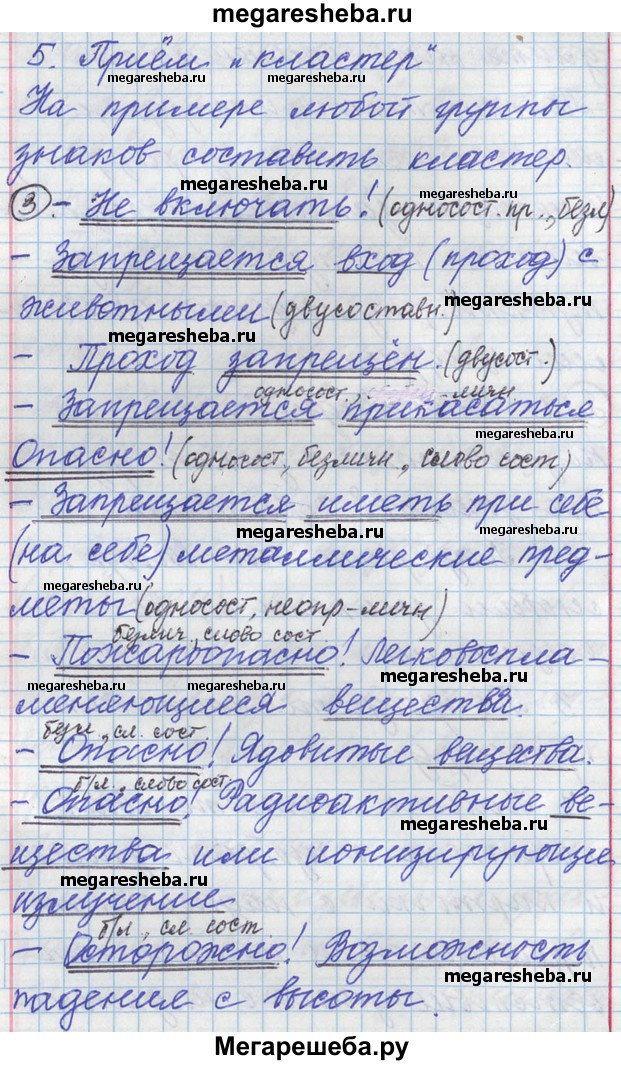 megaresheba.ru
5. Приём „кластер"
megaresheba.ru megaresheba.ru
На примере любой группы
знаков составить кластер.
megaresheba.ru megaresheba.ru
3 - Не включать! (односост. пр., безл)
- Запрещается вход (проход) с
животными (двусоставн.)
megaresheba.ru megaresheba.ru
- Проход запрещён. (двусост.)
односост. - личн
- Запрещается прикасаться
megaresheba.ru megaresheba.ru
Опасно! (односост, безличн., слово сост)
- Запрещается иметь при себе
megaresheba.ru megaresheba.ru
(на себе) металлические пред-
megaresheba.ru
меты (односост, неопр-личн)
безлич., слово сост.
megaresheba.ru
- Пожароопасно! Легковоспла-
megaresheba.ru megaresheba.ru megaresheba.ru
меняющиеся вещества.
безл, сл. сост.
- Опасно! Ядовитые вещества.
б/л, слово сост.
- Опасно! Радиоактивные ве-
megaresheba.ru
щества или ионизирующее
megaresheba.ru
излучение
б/л, сл. сост.
- Осторожно! Возможность
megaresheba.ru megaresheba.ru
падения с высоты.
Мегарешеба.ру